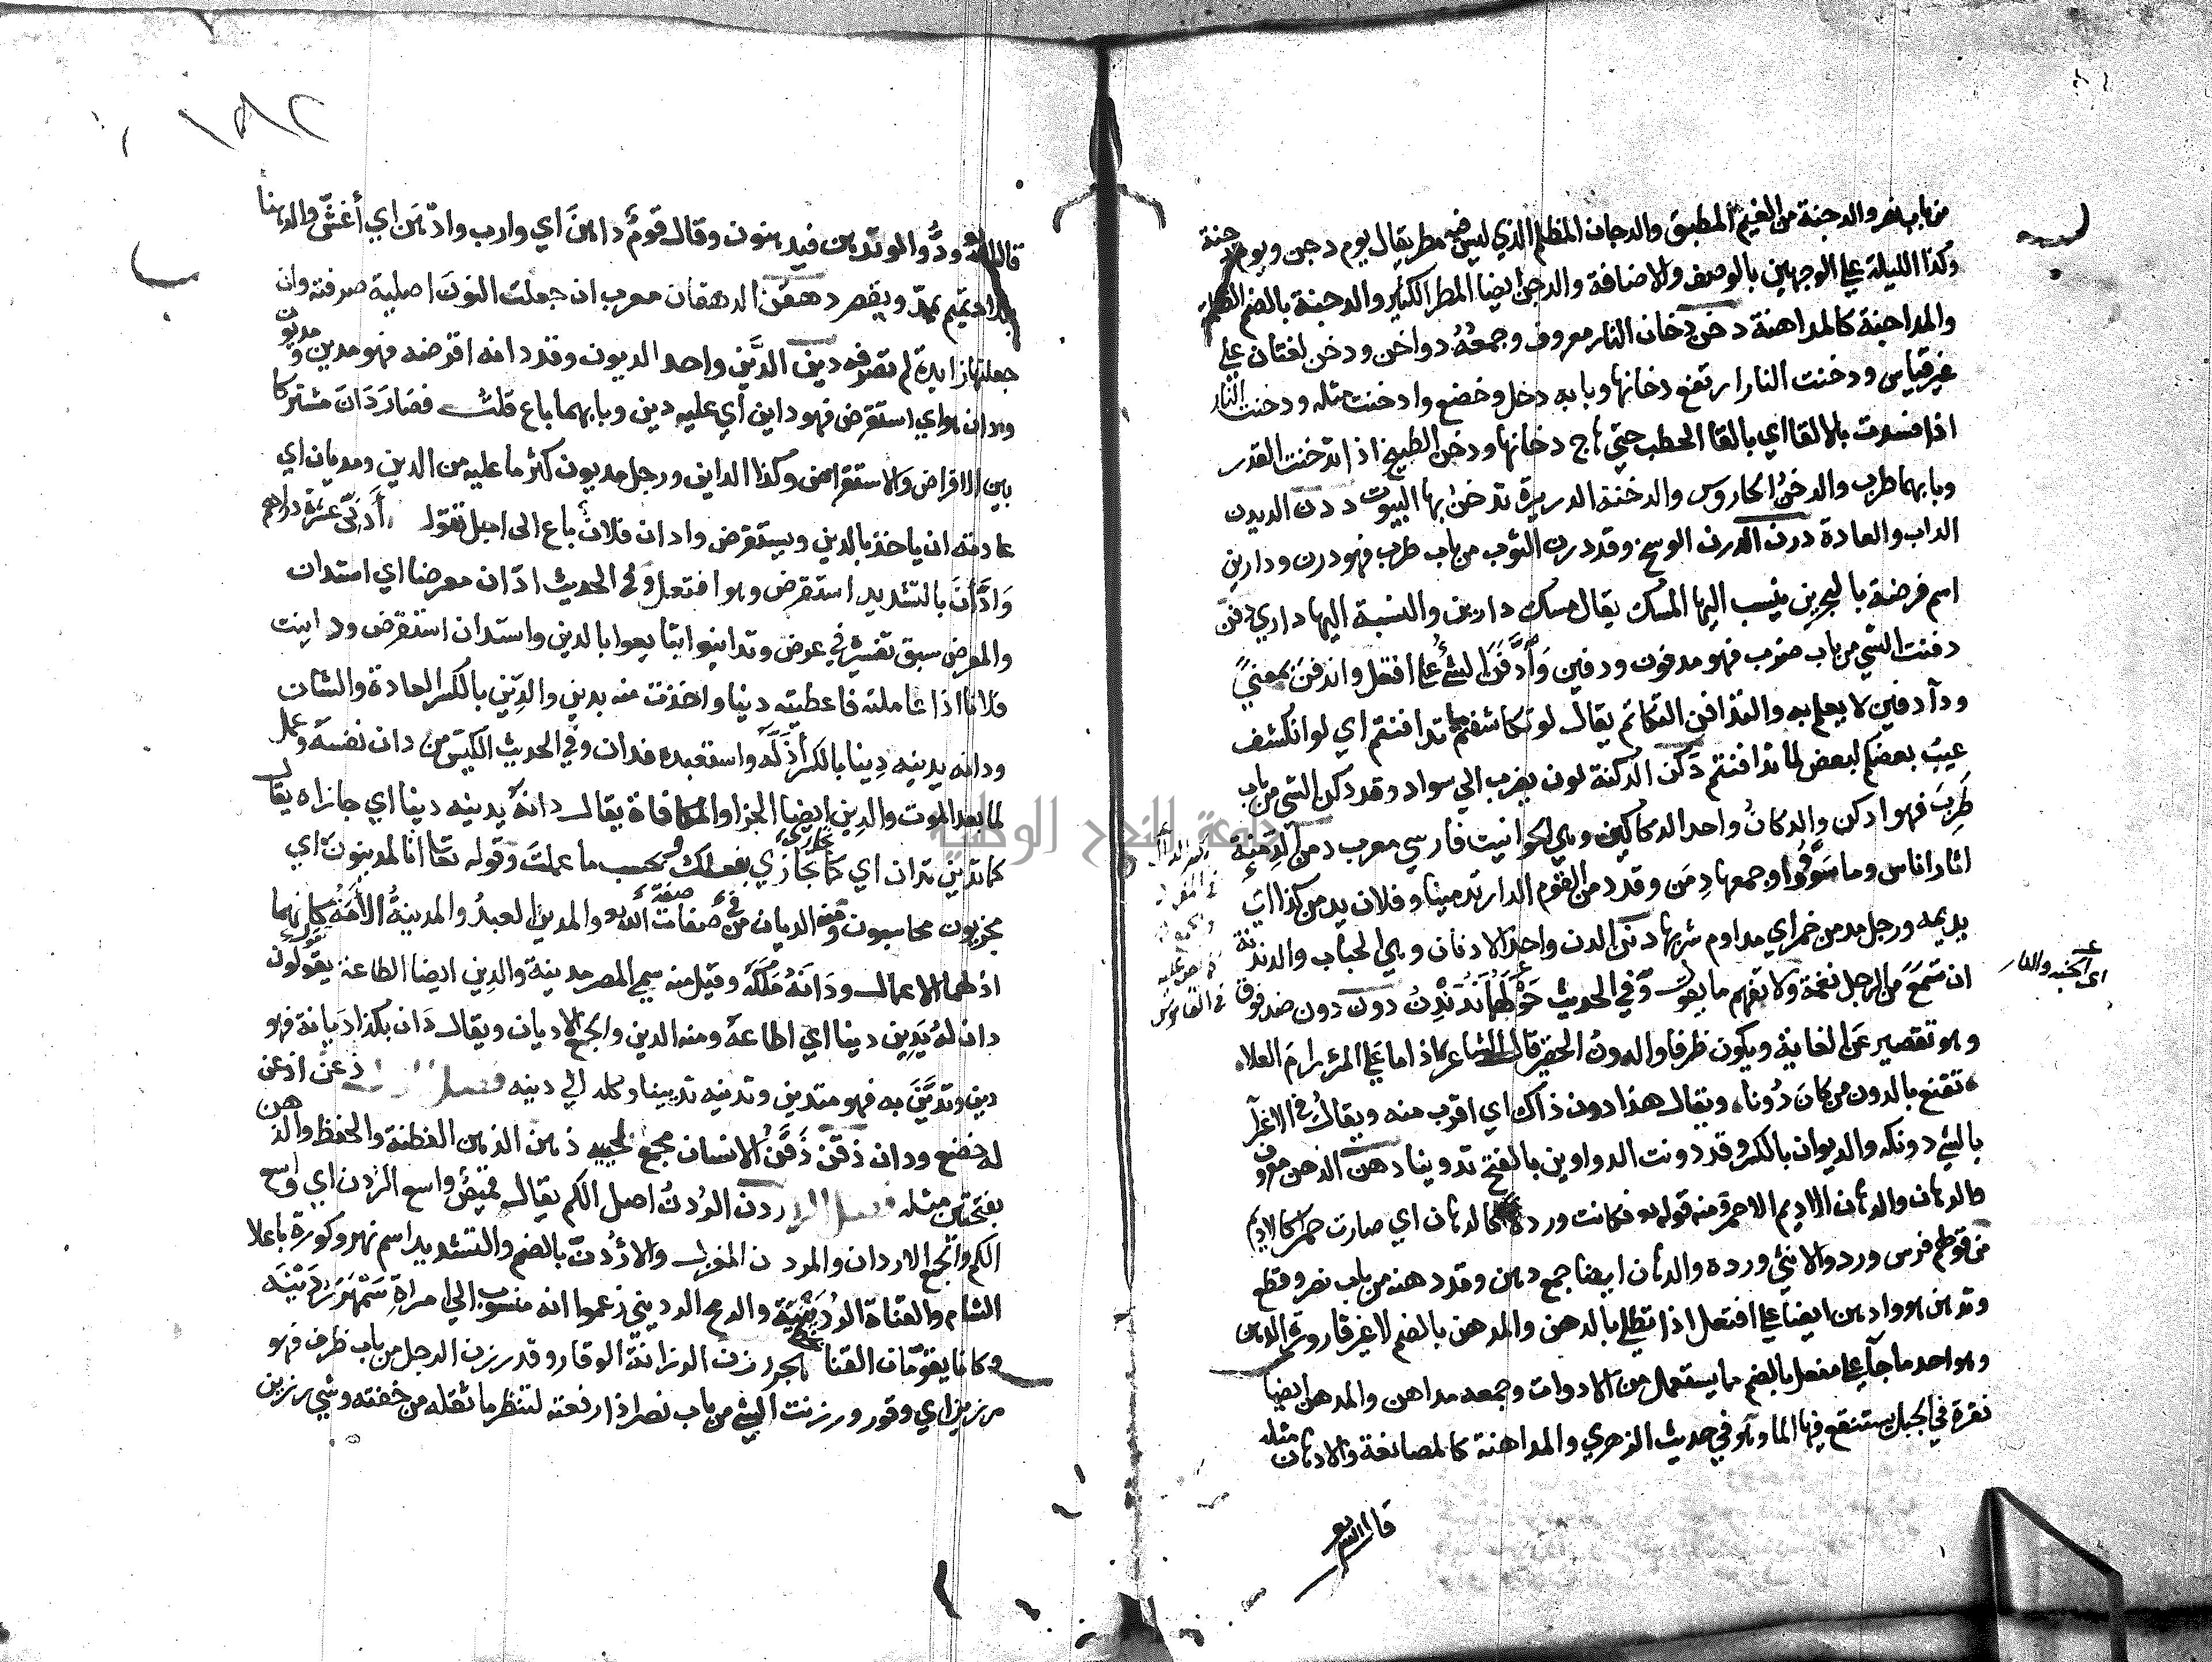 من باب نصر والدجنة من الغيم المطبق والدجان المظلم الذي ليس فيه مطر يقال يوم دجن ويوم دجنة
وكذا الليلة على الوجهين بالوصف والاضافة والدجن ايضا المطر الكثير والدجنة بالضم الظلمة
والمداجنة كالمداهنة دخن دخان النار معروف وجمعه دواخن ودخن لغتان على
غير قياس ودخنت النار ارتفع دخانها وبابه دخل وخضع وادخنت مثله ودخنت النار
اذا فسدت بالالقا اي بالقا الحطب حتى هاج دخانها ودخن الطبيخ اذا تدخنت القدر
وبابهما طرب والدخن الجاروس والدخنة الذريرة تدخن بها البيوت ددن الديدن
الداب والعادة درن الدرن الوسخ وقد درن الثوب من باب طرب فهو درن ودارين
اسم فرضة بالبحرين ينسب اليها المسك يقال مسك دارين والنسبة اليها داري دفن
دفنت الشي من باب ضرب فهو مدفون ودفين وادفن الشئ على افتعل واندفن بمعنى
ودآ دفين لا يعلم به والتدافن التكاتم يقال لو تكاشفتم ما تدافنتم اي لو انكشف
عيب بعضكم لبعض لما تدافنتم دكن الدكنة لون يضرب الي سواد وقد دكن الشي من باب
طرب فهو ادكن والدكان واحد الدكاكين وهي الحوانيت فارسي معرب دمن الدمنة
اثار الناس وما سودوا وجمعها دمن وقد دمن القوم الدار تدمينا وفلان يدمن كذا اي
يديمه ورجل مدمن خمر اي مداوم شربها دنن الدن واحد الادنان وهي الحباب والدندنة
ان تسمع من الرجل نغمة ولا تفهم ما يقول وفي الحديث حولهما ندندن دون دون ضد فوق
اي الجنة والنار
في القاموس
وهو تقصير عن الغاية ويكون ظرفا والدون الحقير قال الشاعر اذا ما علي المرء رام العلاء
تقنع بالدون من كان دونا ويقال هذا دون ذاك اي اقرب منه ويقال في الاغرآ
بالشي دونكه والديوان بالكسر وقد دونت الدواوين بالفتح تدوينا دهن الدهن معروف
كالدهان والدهان الاديم الاحمر ومنه قوله تع فكانت وردة كالدهان اي صارت حمرا كالاديم
من قولهم فرس ورد والانثي ورده والدهان ايضا جمع دهن وقد دهنه من باب نصر وقطع
وتدهن هو وادهن ايضا على افتعل اذا تطلى بالدهن والمدهن بالضم لا غير قارورة الدهن
وهو احد ما جآ على مفعل بالضم مما يستعمل من الادوات وجمعه مداهن والمدهن ايضا
نقرة في الجبل يستنقع فيها الما وهو في حديث الزهري والمداهنة كالمصانعة والادهان مثله
قال الله تع
١٥٢
قال الله تع ودوا لو تدهن فيدهنون وقال قوم داهن اي وارب وادهن اي أغش والدهنا
بلاد تميم يمد ويقصر دهقن الدهقان معرب ان جعلت النون اصلية صرفته وان
جعلتها زايدة لم تصرفه دين الدين واحد الديون وقد دانه اقرضه فهو مدين ومديون
ودان هو اي استقرض فهو داين اي عليه دين وبابهما باع قلت فصار دان مشتركا
بين الاقراض والاستقراض وكذا الداين ورجل مديون كثر ما عليه من الدين ومديان اي
عادته ان ياخذ بالدين ويستقرض وادان فلان باع الى اجل تقول أدني عشرة دراهم
وادان بالتشديد استقرض وهو افتعل وفي الحديث ادان معرضا اي استدان
والمعرض سبق تفسيره في عرض وتداينوا تبايعوا بالدين واستدان استقرض وداينت
فلانا اذا عاملته فاعطيته دينا واخذت منه بدين والدين بالكسر العادة والشان
ودانه يدينه دينا بالكسر أذله واستعبده فدان وفي الحديث الكيس من دان نفسه وعمل
لما بعد الموت والدين ايضا الجزا والمكافاة يقال دانه يدينه دينا اي جازاه يقال
كما تدين تدان اي كما تجازي تجازى بفعلك وبحسب ما عملت وقوله تعا انا لمدينون اي
مجزيون محاسبون ومنه الديان في صفة الله والمدين العبد والمدينة الامة كانهما
اذلهما الاعمال ودانه ملكه وقيل منه سمي المصر مدينة والدين ايضا الطاعة يقولون
دان له يدين دينا اي اطاعه ومنه الدين والجمع الاديان ويقال دان بكذا ديانة فهو
دين وتدين به فهو متدين ودينه تديينا وكله الي دينه فصل الذال ذعن اذعن
له خضع ودان ذقن ذقن الانسان مجمع لحييه ذهن الذهن الفطنة والحفظ والذهن
بفتحتين مثله فصل الرا ردن الردن اصل الكم يقال قميص واسع الردن اي واسع
الكم والجمع الاردان والمردن المغزل والاردن بالضم والتشديد اسم نهر وكورة باعلا
الشام والقناة الردينية والرمح الرديني زعموا انه منسوب الي امراة سمهر ردينة
وكانا يقومان القنا بخط هجر رزن الرزانة الوقار وقد رزن الرجل من باب ظرف فهو
رزين اي وقور ورزنت الشي من باب نصر اذا رفعته لتنظر ما ثقله من خفته وشي رزين